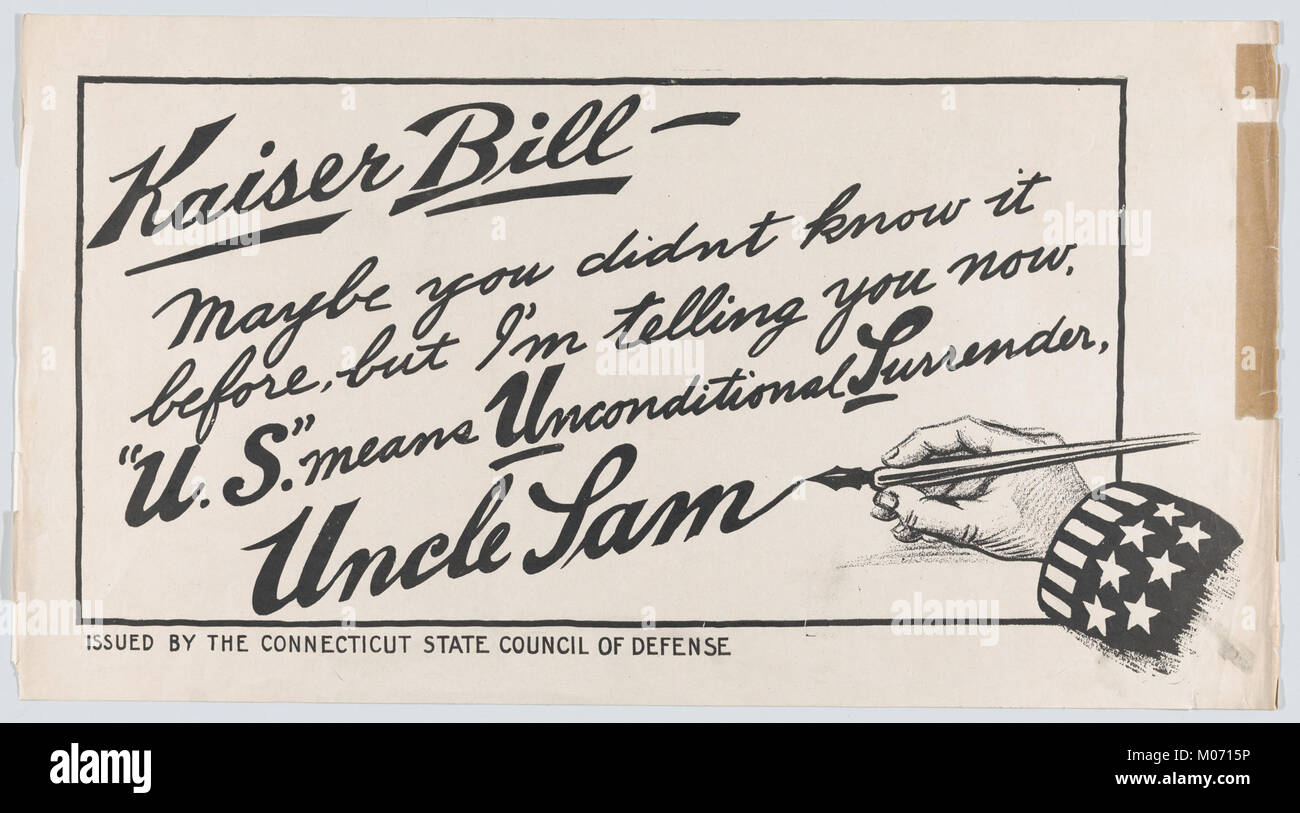 Kaiser Bill —
Maybe you didnt know it
before, but I'm telling you now.
"U. S." means Unconditional Surrender,
Uncle Sam
ISSUED BY THE CONNECTICUT STATE COUNCIL OF DEFENSE
alamy
Image ID: M0715P
www.alamy.com